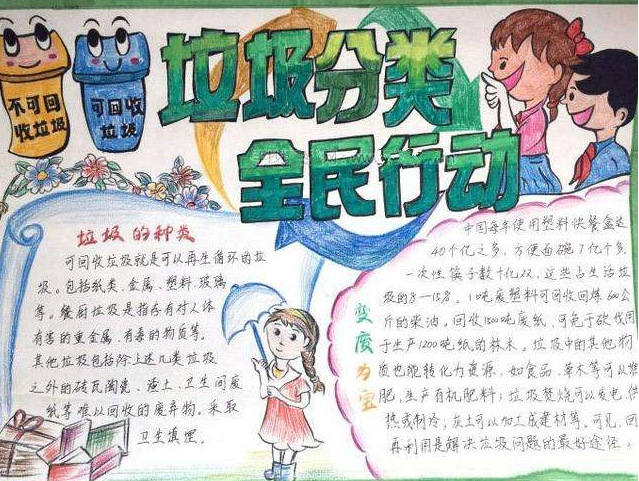 不可回
收垃圾
可回收
垃圾
垃圾分类
全民行动
垃圾的种类
可回收垃圾就是可以再生循环的垃
圾。包括纸类、金属、塑料、玻璃
等。餐厨垃圾是指存有对人体
有害的重金属、有毒的物质等。
其他垃圾包括除上述几类垃圾
之外的砖瓦陶瓷、渣土、卫生间废
纸等难以回收的废弃物。采取
卫生填埋。
变废为宝
中国每年使用塑料快餐盒达
40个亿之多,方便面碗7亿个多,
一次性筷子数十亿双,这些占生活垃
圾的8—15%。1吨废塑料可回收回炼600公
斤的柴油。回收1500吨废纸,可免于砍伐用
于生产1200吨纸的林木。垃圾中的其他物
质也能转化为资源,如食品、草木等可以堆
肥,生产有机肥料;垃圾焚烧可以发电、供
热或制冷;灰土可以加工成建材等。可见,回
再利用是解决垃圾问题的最好途径。